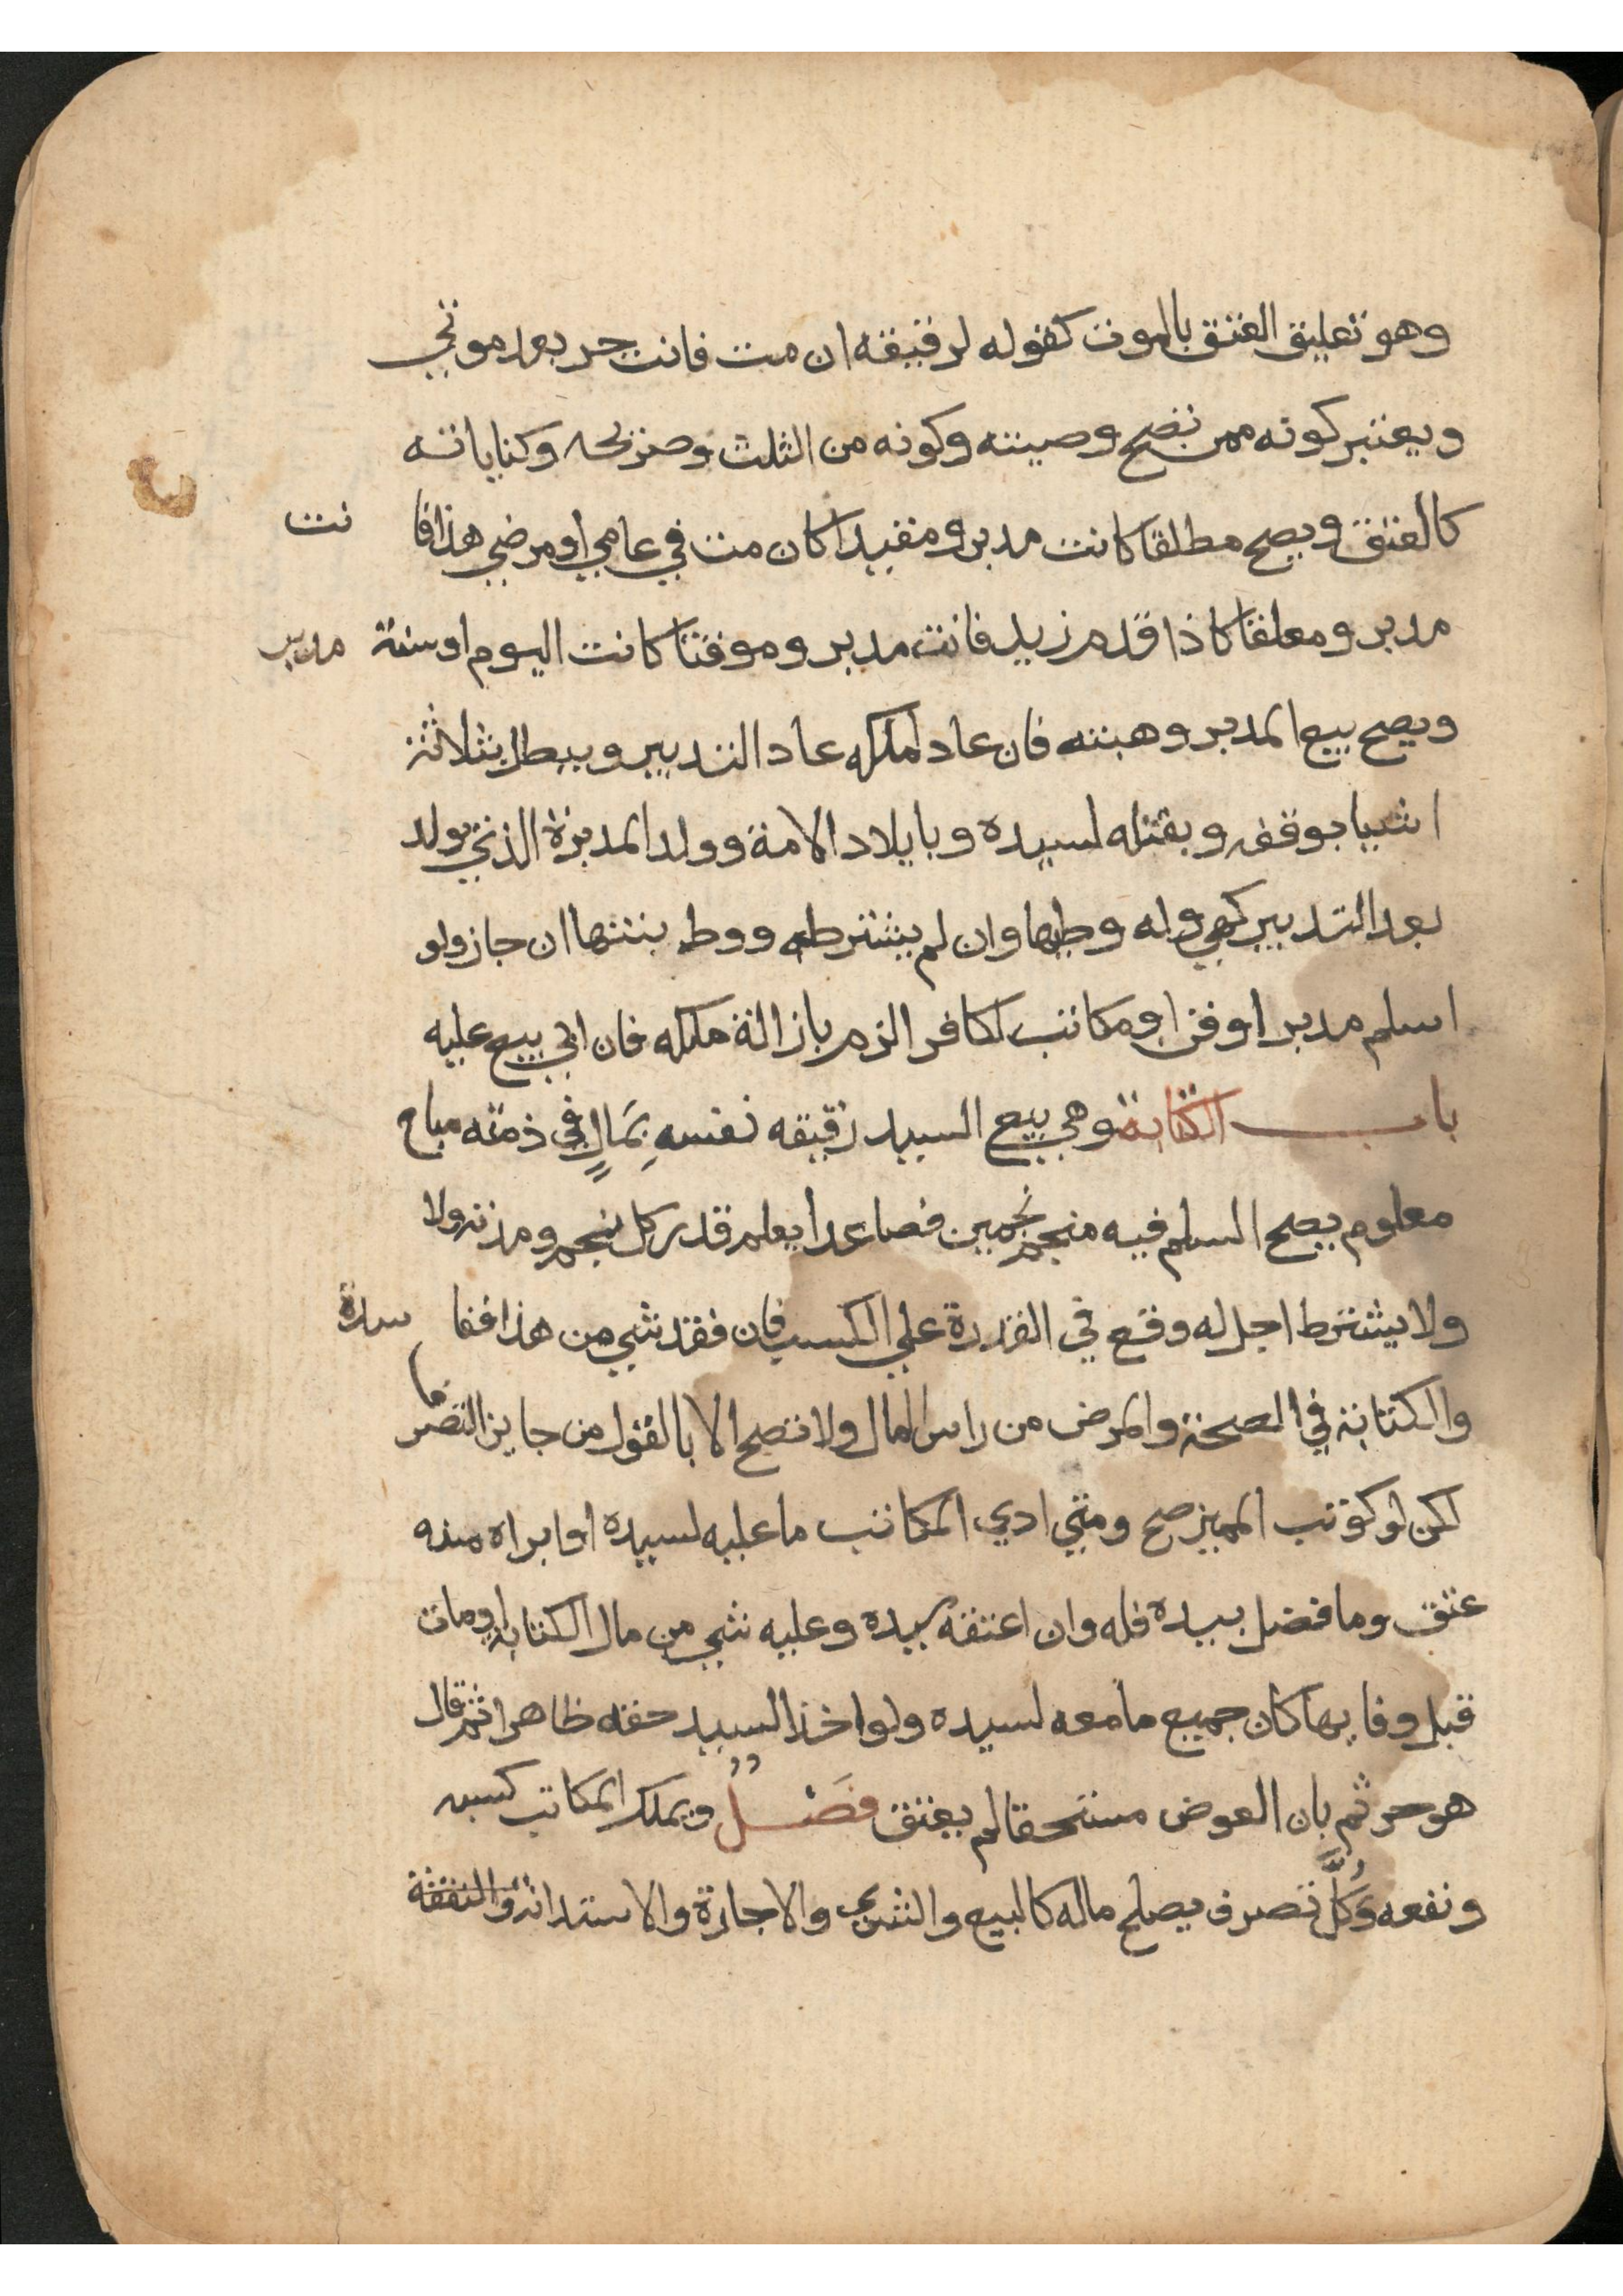 وهو تعليق العتق بالموت كقوله لرقيقه ان مت فانت حر بعد موتي
ويعتبر كونه ممن تصح وصيته وكونه من الثلث وصريحه وكناياته
كالعتق ويصح مطلقا كانت مدبر ومقيدا كان مت في عامي او مرضي هذا فا نت
مدبر ومعلقا كاذا قدم زيد فانت مدبر وموقتا كانت اليوم او سنة مدبر
ويصح بيع المدبر وهبته فان عاد لملكه عاد التدبير ويبطل بثلاثة
اشيا بوقفه وبقتله لسيده وبايلاد الامة وولد المدبرة الذي يولد
بعد التدبير كهي وله وطيها وان لم يشترطه ووط بنتها ان جاز ولو
اسلم مدبر او قن او مكاتب لكافر الزم بازالة ملكه فان ابي بيع عليه
باب الكتابة وهي بيع السيد رقيقه نفسه بمالٍ في ذمته مباح
معلوم يصح السلم فيه منجم نجمين فصاعدا يعلم قدر كل نجم ومدته ولا
ولا يشترط اجل له وقع في القدرة علي الكسب فان فقد شي من هذا ففا سدة
والكتابة في الصحة والمرض من راس المال ولا تصح الا بالقول من جايز التصر ف
لكن لو كوتب المميز صح ومتي ادي المكاتب ما عليه لسيده او ابراه منه
عتق وما فضل بيده فله وان اعتقه سيده وعليه شي من مال الكتابة او مات
قبل وفايها كان جميع ما معه لسيده ولو اخذ السيد حقه ظاهرا ثم قال
هو حر ثم بان العوض مستحقا لم يعتق فَصْلٌ ويملك المكاتب كسبه
ونفعه وكُلَّ تصرف يصلح ماله كالبيع والشري والاجارة والاستدانة والنفقة